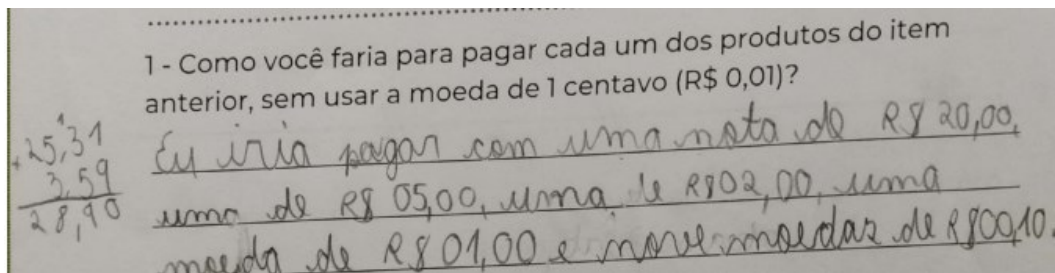 1 - Como você faria para pagar cada um dos produtos do item
anterior, sem usar a moeda de 1 centavo (R$ 0,01)?
1
25,31
+ 3,59
28,90
Eu iria pagar com uma nota de R$ 20,00,
uma de R$ 05,00, uma de R$02,00, uma
moeda de R$ 01,00 e nove moedas de R$00,10.